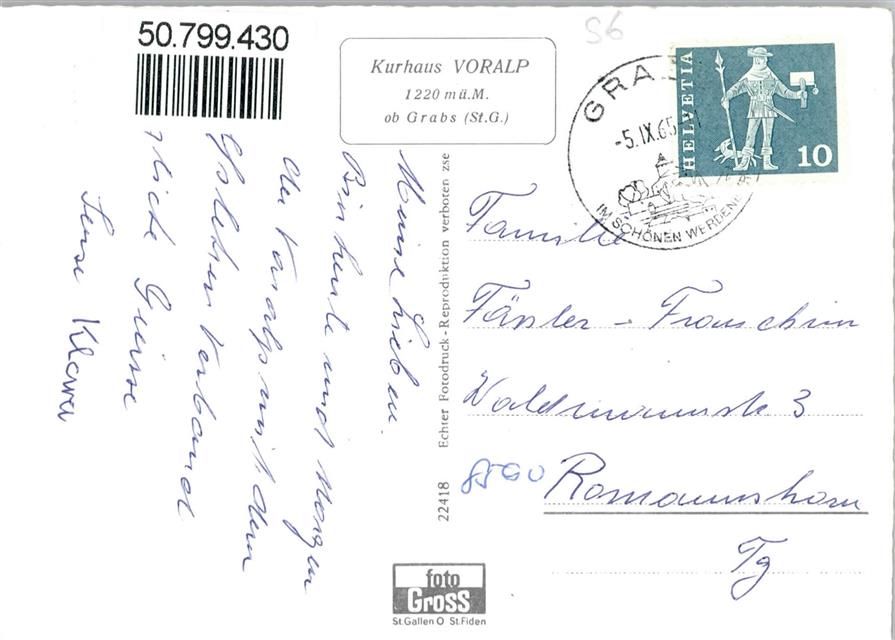 50.799.430
S6
Kurhaus VORALP
1220 mü.M.
ob Grabs (St.G.)
GRA
-5.IX.65
IM SCHÖNEN WERDENB
HELVETIA
10
Meine Lieben.
Bin heute und Morgen
der Voralp mit dem
Verband
Grüsse
Klara
Echter Fotodruck - Reproduktion verboten zse
22418
Familie
Fässler - Frauschin
Waldmannstr 3
8590 Romannshorn
Tg
foto
GROSS
St.Gallen O St.Fiden